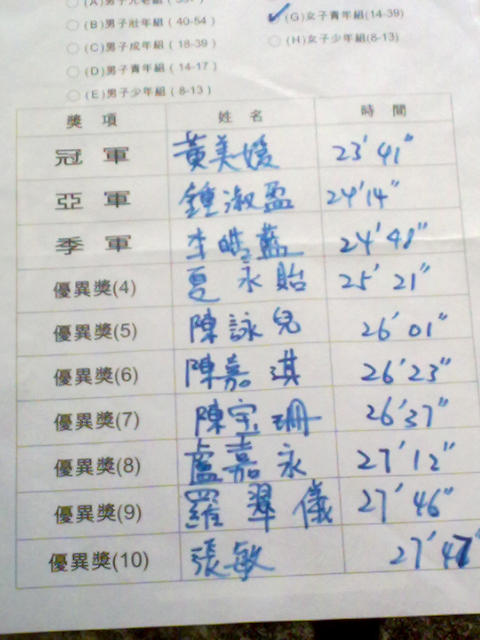 (A)男子元老組
(B)男子壯年組(40-54)
(C)男子成年組(18-39)
(D)男子青年組(14-17)
(E)男子少年組(8-13)
✓(G)女子青年組(14-39)
(H)女子少年組(8-13)
獎項 姓名 時間
冠軍 黃美媛 23'41"
亞軍 鍾淑盈 24'14"
季軍 李皓藍 24'48"
優異獎(4) 夏永貽 25'21"
優異獎(5) 陳詠兒 26'01"
優異獎(6) 陳嘉琪 26'23"
優異獎(7) 陳宝珊 26'37"
優異獎(8) 盧嘉永 27'12"
優異獎(9) 羅翠儀 27'46"
優異獎(10) 張敏 27'47